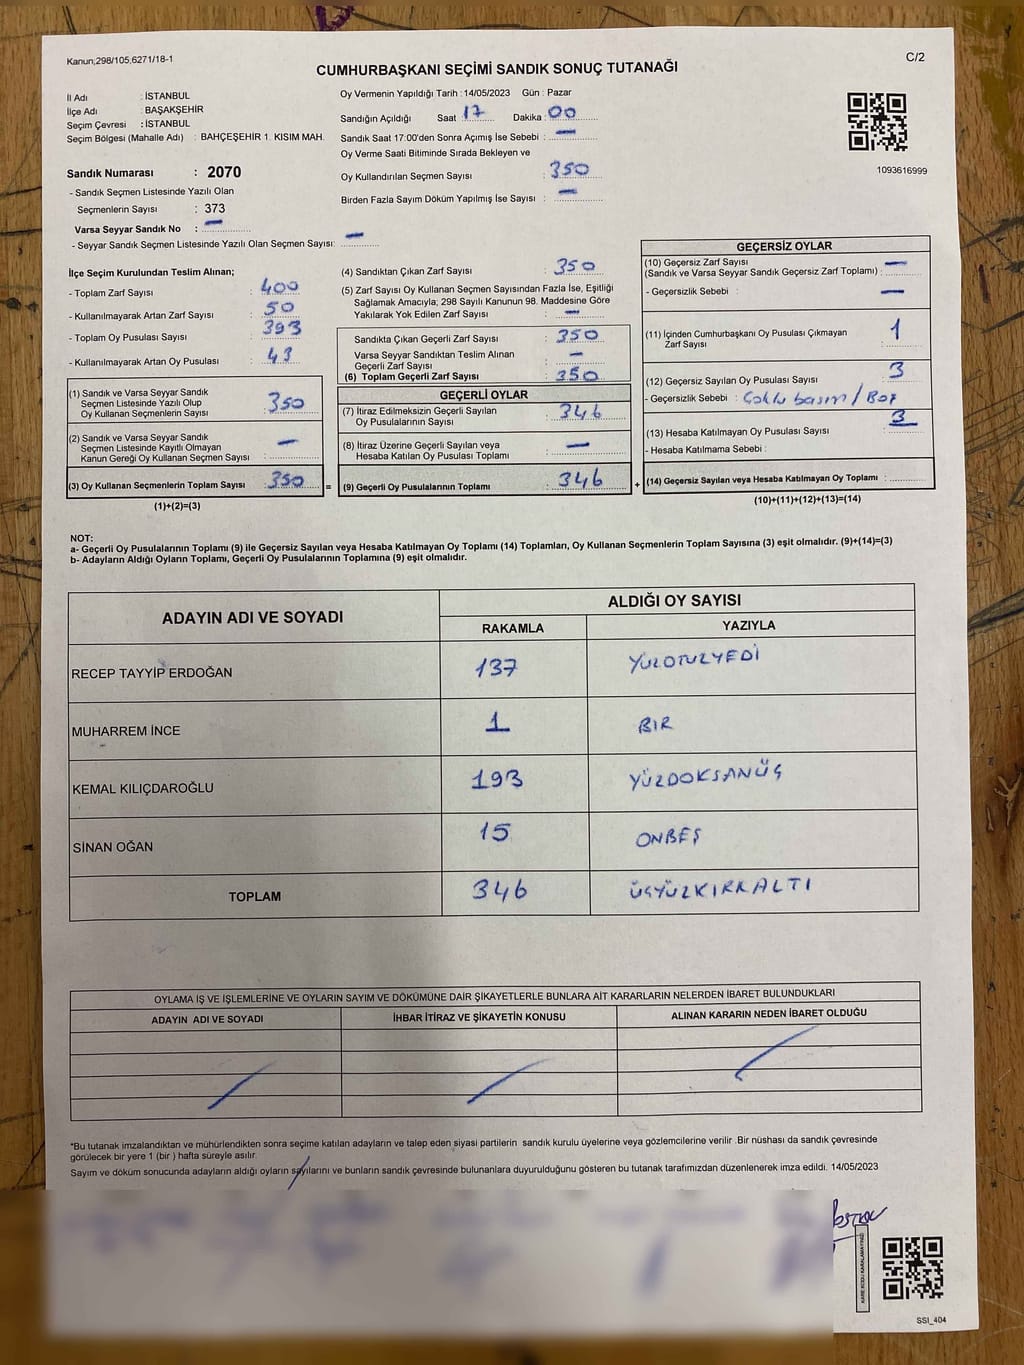 Kanun;298/105,6271/18-1
C/2
CUMHURBAŞKANI SEÇİMİ SANDIK SONUÇ TUTANAĞI
İl Adı : İSTANBUL
İlçe Adı : BAŞAKŞEHİR
Seçim Çevresi : İSTANBUL
Seçim Bölgesi (Mahalle Adı) : BAHÇEŞEHİR 1. KISIM MAH.
Sandık Numarası : 2070
- Sandık Seçmen Listesinde Yazılı Olan
Seçmenlerin Sayısı : 373
Varsa Seyyar Sandık No : —
- Seyyar Sandık Seçmen Listesinde Yazılı Olan Seçmen Sayısı: —
Oy Vermenin Yapıldığı Tarih : 14/05/2023 Gün : Pazar
Sandığın Açıldığı Saat 17 Dakika : 00
Sandık Saat 17:00'den Sonra Açımış İse Sebebi : —
Oy Verme Saati Bitiminde Sırada Bekleyen ve
Oy Kullandırılan Seçmen Sayısı : 350
Birden Fazla Sayım Döküm Yapılmış İse Sayısı : —
1093616999
İlçe Seçim Kurulundan Teslim Alınan;
- Toplam Zarf Sayısı : 400
- Kullanılmayarak Artan Zarf Sayısı : 50
- Toplam Oy Pusulası Sayısı : 393
- Kullanılmayarak Artan Oy Pusulası : 43
(1) Sandık ve Varsa Seyyar Sandık
Seçmen Listesinde Yazılı Olup
Oy Kullanan Seçmenlerin Sayısı : 350
(2) Sandık ve Varsa Seyyar Sandık
Seçmen Listesinde Kayıtlı Olmayan
Kanun Gereği Oy Kullanan Seçmen Sayısı : —
(3) Oy Kullanan Seçmenlerin Toplam Sayısı : 350
(1)+(2)=(3)
=
(4) Sandıktan Çıkan Zarf Sayısı : 350
(5) Zarf Sayısı Oy Kullanan Seçmen Sayısından Fazla İse, Eşitliği
Sağlamak Amacıyla; 298 Sayılı Kanunun 98. Maddesine Göre
Yakılarak Yok Edilen Zarf Sayısı : —
Sandıkta Çıkan Geçerli Zarf Sayısı : 350
Varsa Seyyar Sandıktan Teslim Alınan
Geçerli Zarf Sayısı : —
(6) Toplam Geçerli Zarf Sayısı : 350
GEÇERLİ OYLAR
(7) İtiraz Edilmeksizin Geçerli Sayılan
Oy Pusulalarının Sayısı : 346
(8) İtiraz Üzerine Geçerli Sayılan veya
Hesaba Katılan Oy Pusulası Toplamı : —
(9) Geçerli Oy Pusulalarının Toplamı : 346
+
GEÇERSİZ OYLAR
(10) Geçersiz Zarf Sayısı
(Sandık ve Varsa Seyyar Sandık Geçersiz Zarf Toplamı) : —
- Geçersizlik Sebebi : —
(11) İçinden Cumhurbaşkanı Oy Pusulası Çıkmayan
Zarf Sayısı : 1
(12) Geçersiz Sayılan Oy Pusulası Sayısı : 3
- Geçersizlik Sebebi : Çoklu basım / Boş
(13) Hesaba Katılmayan Oy Pusulası Sayısı : 3
- Hesaba Katılmama Sebebi :
(14) Geçersiz Sayılan veya Hesaba Katılmayan Oy Toplamı :
(10)+(11)+(12)+(13)=(14)
NOT:
a- Geçerli Oy Pusulalarının Toplamı (9) ile Geçersiz Sayılan veya Hesaba Katılmayan Oy Toplamı (14) Toplamları, Oy Kullanan Seçmenlerin Toplam Sayısına (3) eşit olmalıdır. (9)+(14)=(3)
b- Adayların Aldığı Oyların Toplamı, Geçerli Oy Pusulalarının Toplamına (9) eşit olmalıdır.
ADAYIN ADI VE SOYADI ALDIĞI OY SAYISI
RAKAMLA YAZIYLA
RECEP TAYYİP ERDOĞAN 137 YÜZOTUZYEDİ
MUHARREM İNCE 1 BİR
KEMAL KILIÇDAROĞLU 193 YÜZDOKSANÜÇ
SİNAN OĞAN 15 ONBEŞ
TOPLAM 346 ÜÇYÜZKIRKALTI
OYLAMA İŞ VE İŞLEMLERİNE VE OYLARIN SAYIM VE DÖKÜMÜNE DAİR ŞİKAYETLERLE BUNLARA AİT KARARLARIN NELERDEN İBARET BULUNDUKLARI
ADAYIN ADI VE SOYADI İHBAR İTİRAZ VE ŞİKAYETİN KONUSU ALINAN KARARIN NEDEN İBARET OLDUĞU
*Bu tutanak imzalandıktan ve mühürlendikten sonra seçime katılan adayların ve talep eden siyasi partilerin sandık kurulu üyelerine veya gözlemcilerine verilir .Bir nüshası da sandık çevresinde
görülecek bir yere 1 (bir ) hafta süreyle asılır.
Sayım ve döküm sonucunda adayların aldığı oyların sayılarını ve bunların sandık çevresinde bulunanlara duyurulduğunu gösteren bu tutanak tarafımızdan düzenlenerek imza edildi. 14/05/2023
KARE KODU KARALAMAYINIZ!
SSI_404